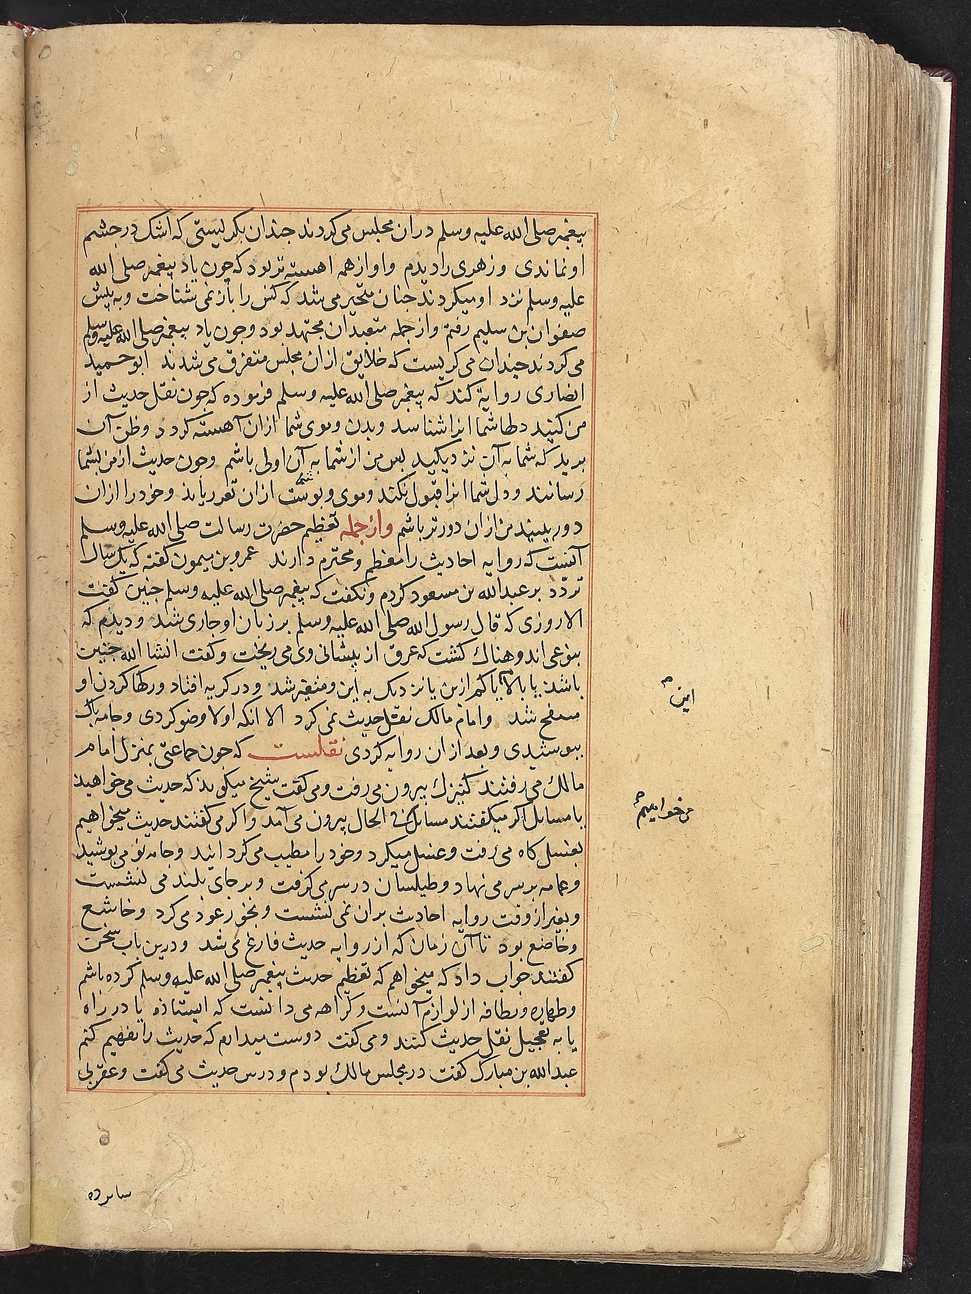 پیغمبر صلی الله علیه وسلم در ان مجلس می کردند جندان بکریستی که اشک در جشم
او نماندی و زهری را دیدم و او از همه اهسته تر بود که جون یاد پیغمبر صلی الله
علیه وسلم نزد او میکردند جنان متحیر می شد که کس را باز نمی شناخت و به پیش
صفوان بن سلیم رفتم و از جمله متعبدان مجتهد بود و جون یاد پیغمبر صلی الله علیه وسلم
می کردند جندان می کریست که خلایق از ان مجلس متفرق می شدند ابو حمید
انصاری روایة کند که پیغمبر صلی الله علیه وسلم فرموده که جون نقل حدیث از
من کنید دلها شما انرا شناسد و بدن و موی شما از ان آهسته کردد و ظن آن
برید که شما به آن نزدیکید بس من از شما به آن اولی باشم و جون حدیث از من بشما
رسانند و دل شما انرا قبول نکند و موی و بوست از ان نفور یابد و خود را از ان
دور بینید من از ان دورتر باشم و از جمله تعظیم حضرت رسالت صلی الله علیه وسلم
آنست که روایه احادیث را معظم و محترم دارند عمرو بن میمون کفته که یک سال
تردد بر عبدالله بن مسعود کردم و نکفت که پیغمبر صلی الله علیه وسلم جنین کفت
الا روزی که قال رسول الله صلی الله علیه وسلم بر زبان او جاری شد و دیدم که
بنوعی اندوهناک کشت که عرق از پیشانی وی می ریخت و کفت انشا الله جنین
باشد یا بالا یا کم ازین یا نزدیک به این و متغیر شد و در کریه افتاد و رکها کردن او
منتفخ شد و امام مالک نقل حدیث نمی کرد الا انکه اولا وضو کردی و جامه پاک
بپوشیدی و بعد از ان روایه کردی نقلست که جون جماعتی بمنزل امام
مالک می رفتند کنیزک بیرون می رفت و می کفت شیخ میکوید که حدیث می خواهید
یا مسایل اکر میکفتند مسایل فی الحال بیرون می آمد و اکر می کفتند حدیث میخواهیم
بغسل کاه می رفت و غسل میکرد و خود را مطیب می کردانید و جامه نو می پوشید
و عمامه بر سر می نهاد و طیلسان در سر می کرفت و بر جای بلند می نشست
و بغیر از وقت روایه احادیث بران نمی نشست و بخور عود می کرد و خاشع
و خاضع بود تا آن زمان که از روایه حدیث فارغ می شد و درین باب سخن
کفتند جواب داد که میخواهم که تعظیم حدیث پیغمبر صلی الله علیه وسلم کرده باشم
و طهاره و نظافه از لوازم آنست و کراهه می دانست که ایستاده یا در راه
یا به تعجیل نقل حدیث کنند و می کفت دوست میدارم که حدیث را تفهیم کنم
عبدالله بن مبارک کفت در مجلس مالک بودم و درس حدیث می کفت و عقربی
این
می خواهیم